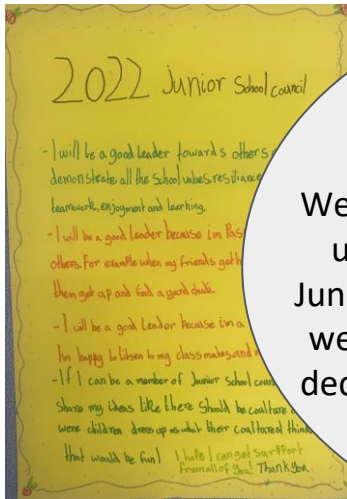 2022 Junior School council
- I will be a good leader towards others
demonstrate all the School values, resilience
teamwork, enjoyment and learning.
- I will be a good Leader because im Pas
others. For example when my friends get h
them get up and find a yard duti.
- I will be a good Leader because im a
I'm happy to litsen to my class mates, and
- If I can be a member of Junior School coun
Share my ideas like there should be coaltare
were children dress up as what their coaltare thin
that would be fun! I hope I can get support
from all of you! Thank you.
We
u
Jun
we
dec